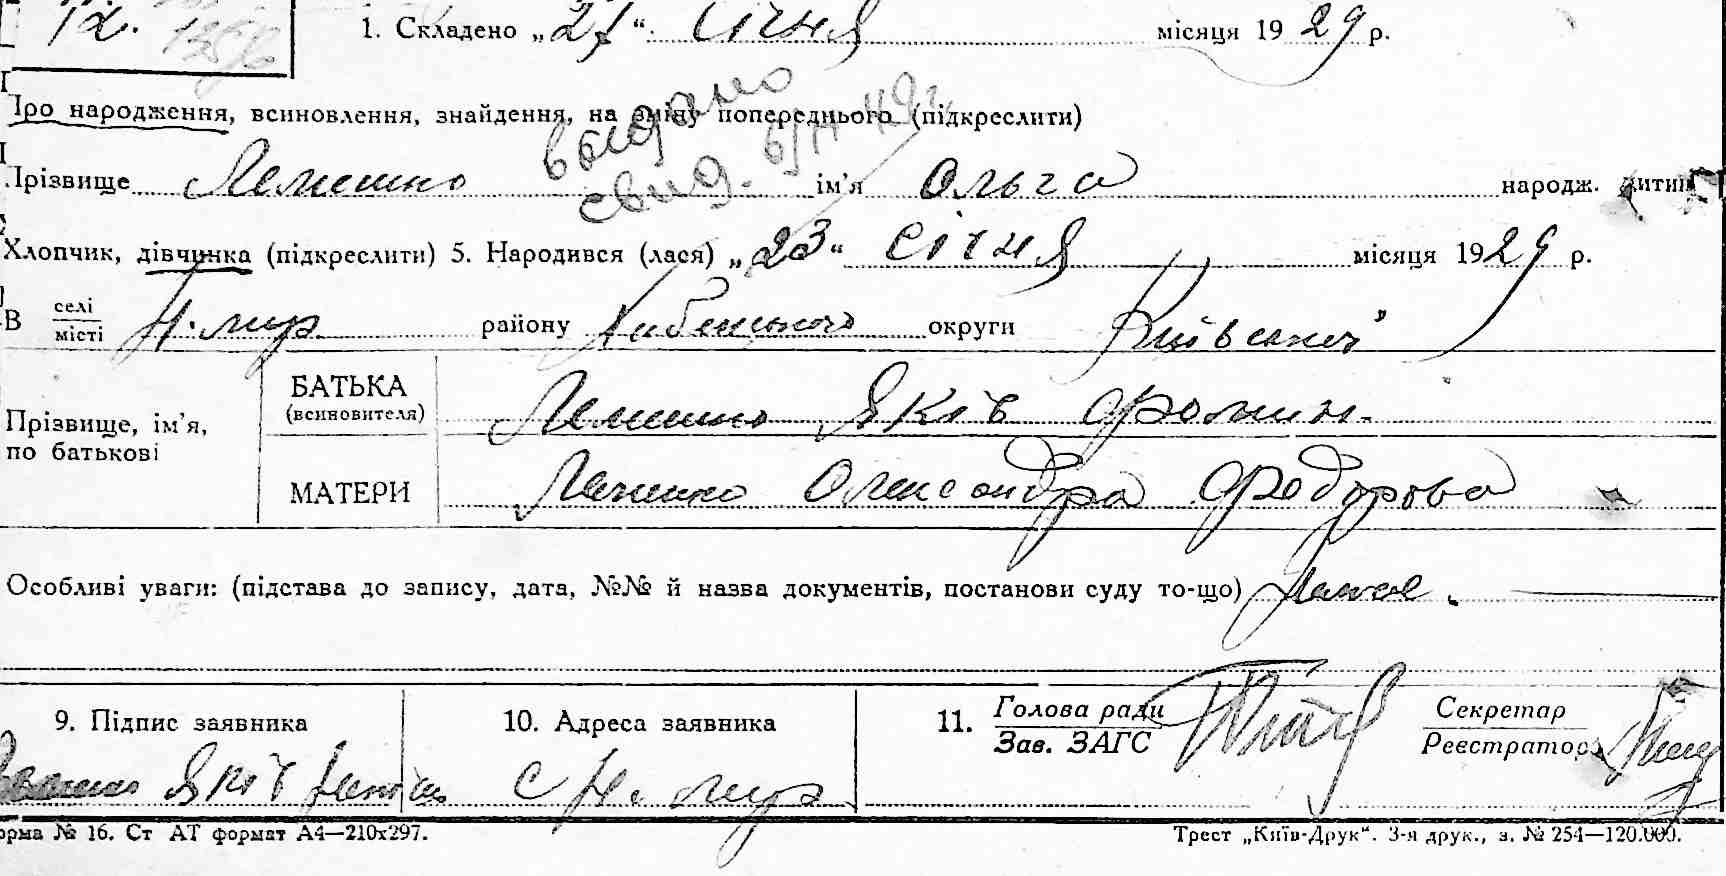 12.
1. Складено „27“ січня місяця 1929 р.
Про народження, всиновлення, знайдення, на зміну попереднього (підкреслити)
видано
свид. 6/IV 49 г.
Прізвище Лемешко ім'я Ольга народж. дитин
Хлопчик, дівчинка (підкреслити) 5. Народився (лася) „23“ січня місяця 1929 р.
В селі/місті району округи Київської
БАТЬКА
(всиновителя)
Лемешко Яків Фомин.
Прізвище, ім'я,
по батькові
МАТЕРИ
Лемешко Олександра Федорова
Особливі уваги: (підстава до запису, дата, №№ й назва документів, постанови суду то-що)
9. Підпис заявника
10. Адреса заявника
11. Голова ради
Зав. ЗАГС
Секретар
Реєстратор
Яків
с
орма № 16. Ст АТ формат А4—210х297.
Трест „Київ-Друк“. 3-я друк., з. № 254—120.000.